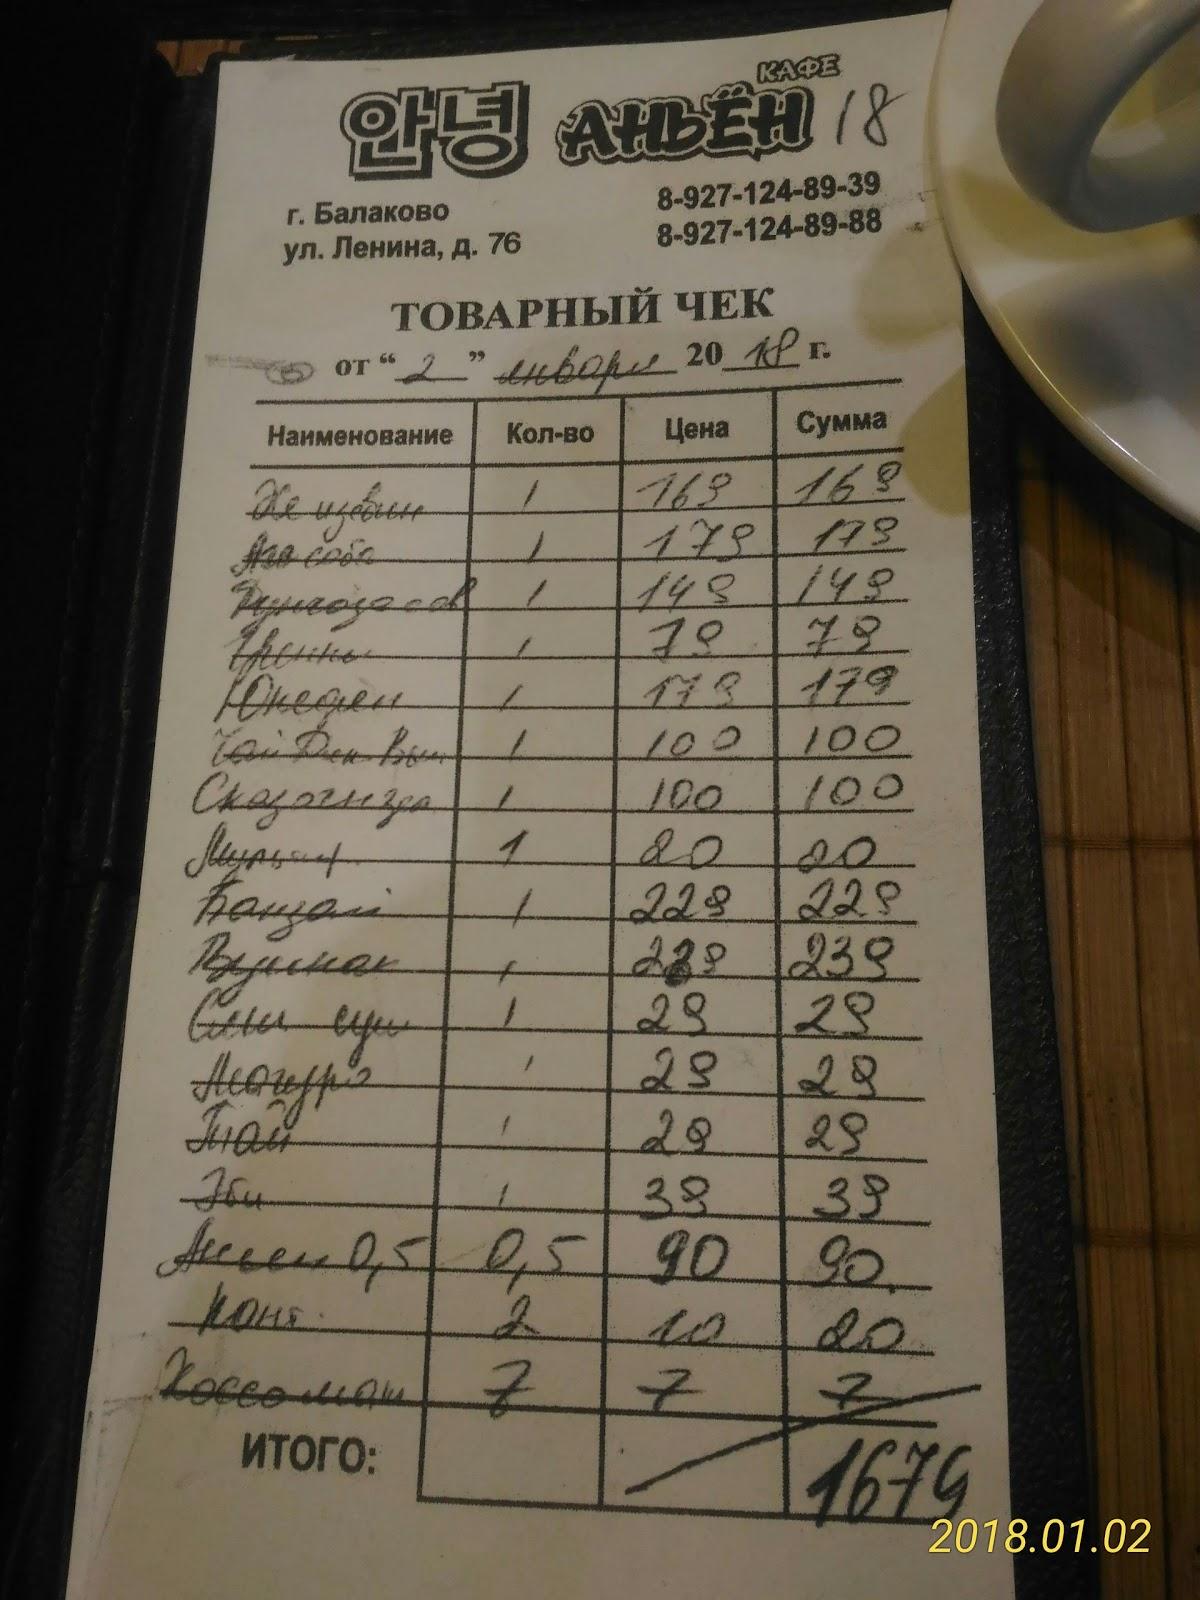 КАФЕ
안녕 АНЬЁН 18
г. Балаково 8-927-124-89-39
ул. Ленина, д. 76 8-927-124-89-88
ТОВАРНЫЙ ЧЕК
от “ 2 ” января 20 18 г.
Наименование Кол-во Цена Сумма
Хе 1 169 169
1 179 179
1 149 149
Гренки 1 79 79
1 179 179
Чай 1 100 100
1 100 100
1 20 20
Банзай 1 229 229
1 239
1 29 29
Магуро 1 29 29
Тай 1 29 29
Эби 1 39 39
Аньен 0,5 0,5 90 90
Конт. 2 10 20
7 7 7
ИТОГО: 1679
2018.01.02